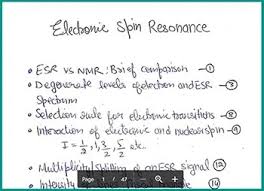 Electronic Spin Resonance
• ESR vs NMR: Brief comparison - ①
• Degenerate levels of electron and ESR - ③
Spectrum
• Selection rule for electronic transitions - ⑧
• Interaction of electronic and nuclear spin - ⑨
I = 1/2, 1, 3/2, 5/2 etc.
• Multiplicity of an ESR signal ⑫
Page / 47
Intensity ⑭